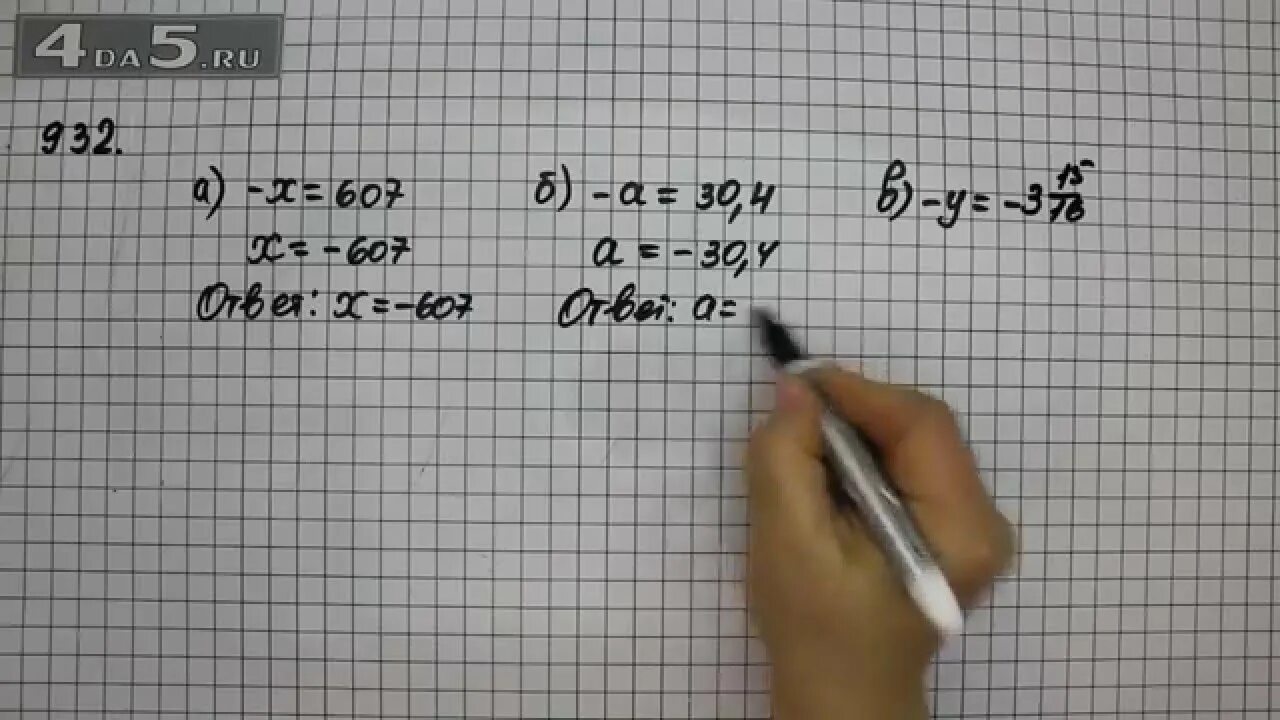 4DA5.RU
932.
а) -x = 607
x = -607
Ответ: x = -607
б) -a = 30,4
a = -30,4
Ответ: a =
в) -y = -3 15/76